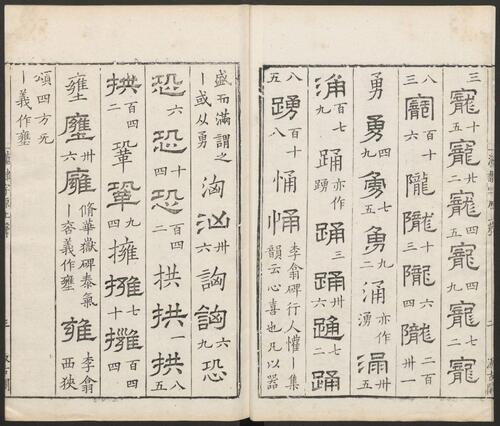 三寵十五寵廿二寵四五寵九二寵七二寵
八三寵百十隴隴十三隴四隴六四隴二百卅一
勇勇四七勇九五勇九二涌亦作湧涌
涌百七九踊亦作踴踊三六踊卅二踊
八五踴百十八恿恿李翁碑行人懽丨集韻云心喜也凡以器
盛而滿謂之丨或从勇洶汹卅六詾詾六九恐
恐六恐十四恐百四二拱拱一拱八五
拱百四二鞏鞏九四擁擁七十擁百四四
壅廱卅六廱脩華嶽碑泰氣丨容義作壅雍李翁西狹
頌四方无丨義作壅